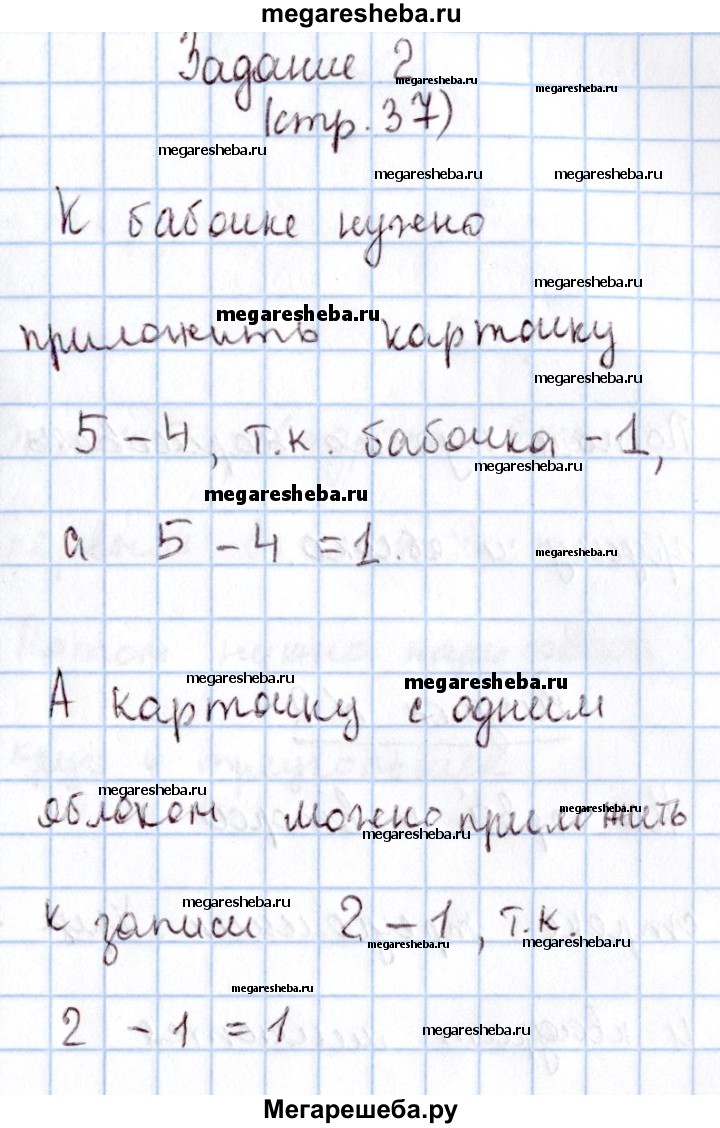 megaresheba.ru
Задание 2
megaresheba.ru
megaresheba.ru
(стр. 37)
megaresheba.ru
megaresheba.ru
megaresheba.ru
К бабочке нужно
megaresheba.ru
megaresheba.ru
приложить карточку
megaresheba.ru
5 - 4, т.к. бабочка - 1,
megaresheba.ru
megaresheba.ru
а 5 - 4 = 1.
megaresheba.ru
megaresheba.ru
megaresheba.ru
А карточку с одним
megaresheba.ru
megaresheba.ru
яблоком можно приложить
megaresheba.ru
megaresheba.ru
к записи 2 - 1, т.к.
megaresheba.ru
megaresheba.ru
megaresheba.ru
2 - 1 = 1
megaresheba.ru
Мегарешеба.ру